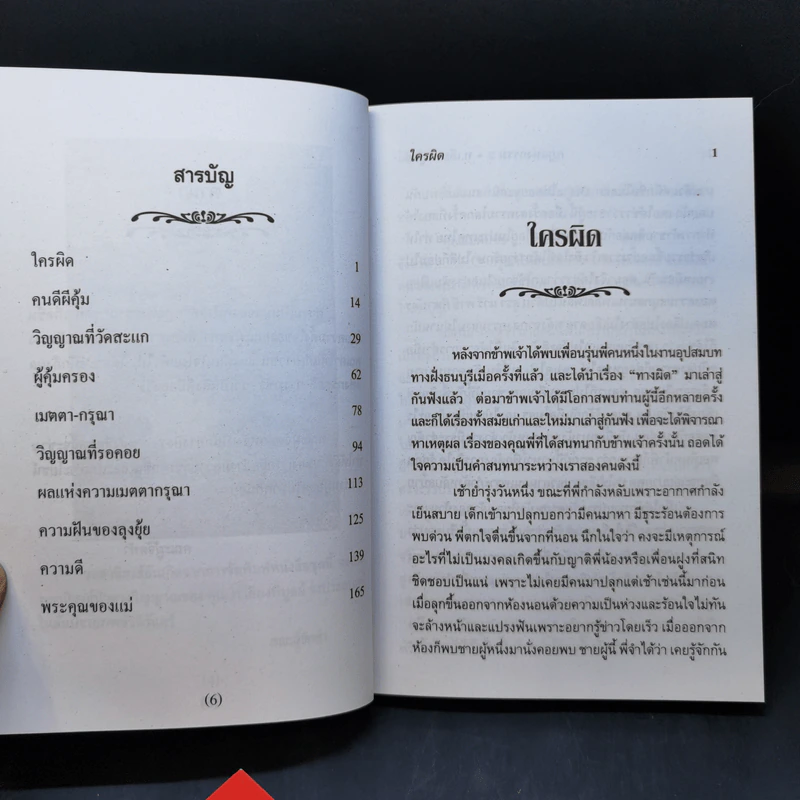 สารบัญ
ใครผิด 1
คนดีผีคุ้ม 14
วิญญาณที่วัดสะแก 29
ผู้คุ้มครอง 62
เมตตา-กรุณา 78
วิญญาณที่รอคอย 94
ผลแห่งความเมตตากรุณา 113
ความฝันของลุงยุ้ย 125
ความดี 139
พระคุณของแม่ 165
(6)
ใครผิด 1
ใครผิด
หลังจากข้าพเจ้าได้พบเพื่อนรุ่นพี่คนหนึ่งในงานอุปสมบท
ทางฝั่งธนบุรีเมื่อครั้งที่แล้ว และได้นำเรื่อง “ทางผิด” มาเล่าสู่
กันฟังแล้ว ต่อมาข้าพเจ้าได้มีโอกาสพบท่านผู้นี้อีกหลายครั้ง
และก็ได้เรื่องทั้งสมัยเก่าและใหม่มาเล่าสู่กันฟัง เพื่อจะได้พิจารณา
หาเหตุผล เรื่องของคุณพี่ที่ได้สนทนากับข้าพเจ้าครั้งนั้น ถอดได้
ใจความเป็นคำสนทนาระหว่างเราสองคนดังนี้
เช้าย่ำรุ่งวันหนึ่ง ขณะที่พี่กำลังหลับเพราะอากาศกำลัง
เย็นสบาย เด็กเข้ามาปลุกบอกว่ามีคนมาหา มีธุระร้อนต้องการ
พบด่วน พี่ตกใจตื่นขึ้นจากที่นอน นึกในใจว่า คงจะมีเหตุการณ์
อะไรที่ไม่เป็นมงคลเกิดขึ้นกับญาติพี่น้องหรือเพื่อนฝูงที่สนิท
ชิดชอบเป็นแน่ เพราะไม่เคยมีคนมาปลุกแต่เช้าเช่นนี้มาก่อน
เมื่อลุกขึ้นออกจากห้องนอนด้วยความเป็นห่วงและร้อนใจไม่ทัน
จะล้างหน้าและแปรงฟันเพราะอยากรู้ข่าวโดยเร็ว เมื่อออกจาก
ห้องก็พบชายผู้หนึ่งมานั่งคอยพบ ชายผู้นี้ พี่จำได้ว่า เคยรู้จักกัน